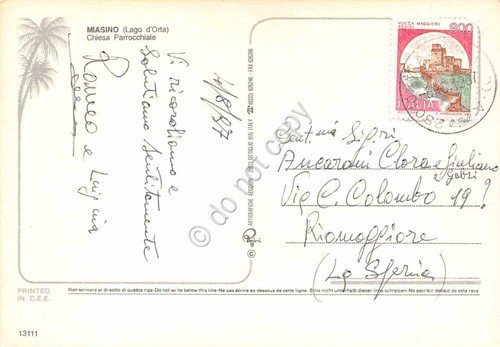 MIASINO (Lago d'Orta)
Chiesa Parrocchiale
4/8/97
Vi ricordiamo e
Salutiamo Sentitamente
Romeo e Luigina
ROCCA MAGGIORE
ASSISI
600
ITALIA
Gent. ma Sig.ri
Ancarani Clora e Giuliano
e Gabri
Via C. Colombo 19
Riomaggiore
(La Spezia)
do not copy
PRINTED
IN C.E.E.
Non scrivere al di sotto di questa riga Do not write below this line - Ne pas écrire au dessous de cette ligne Bitte nicht unterhalb dieser linie schreiben No escriber debajo de esta raya
13111